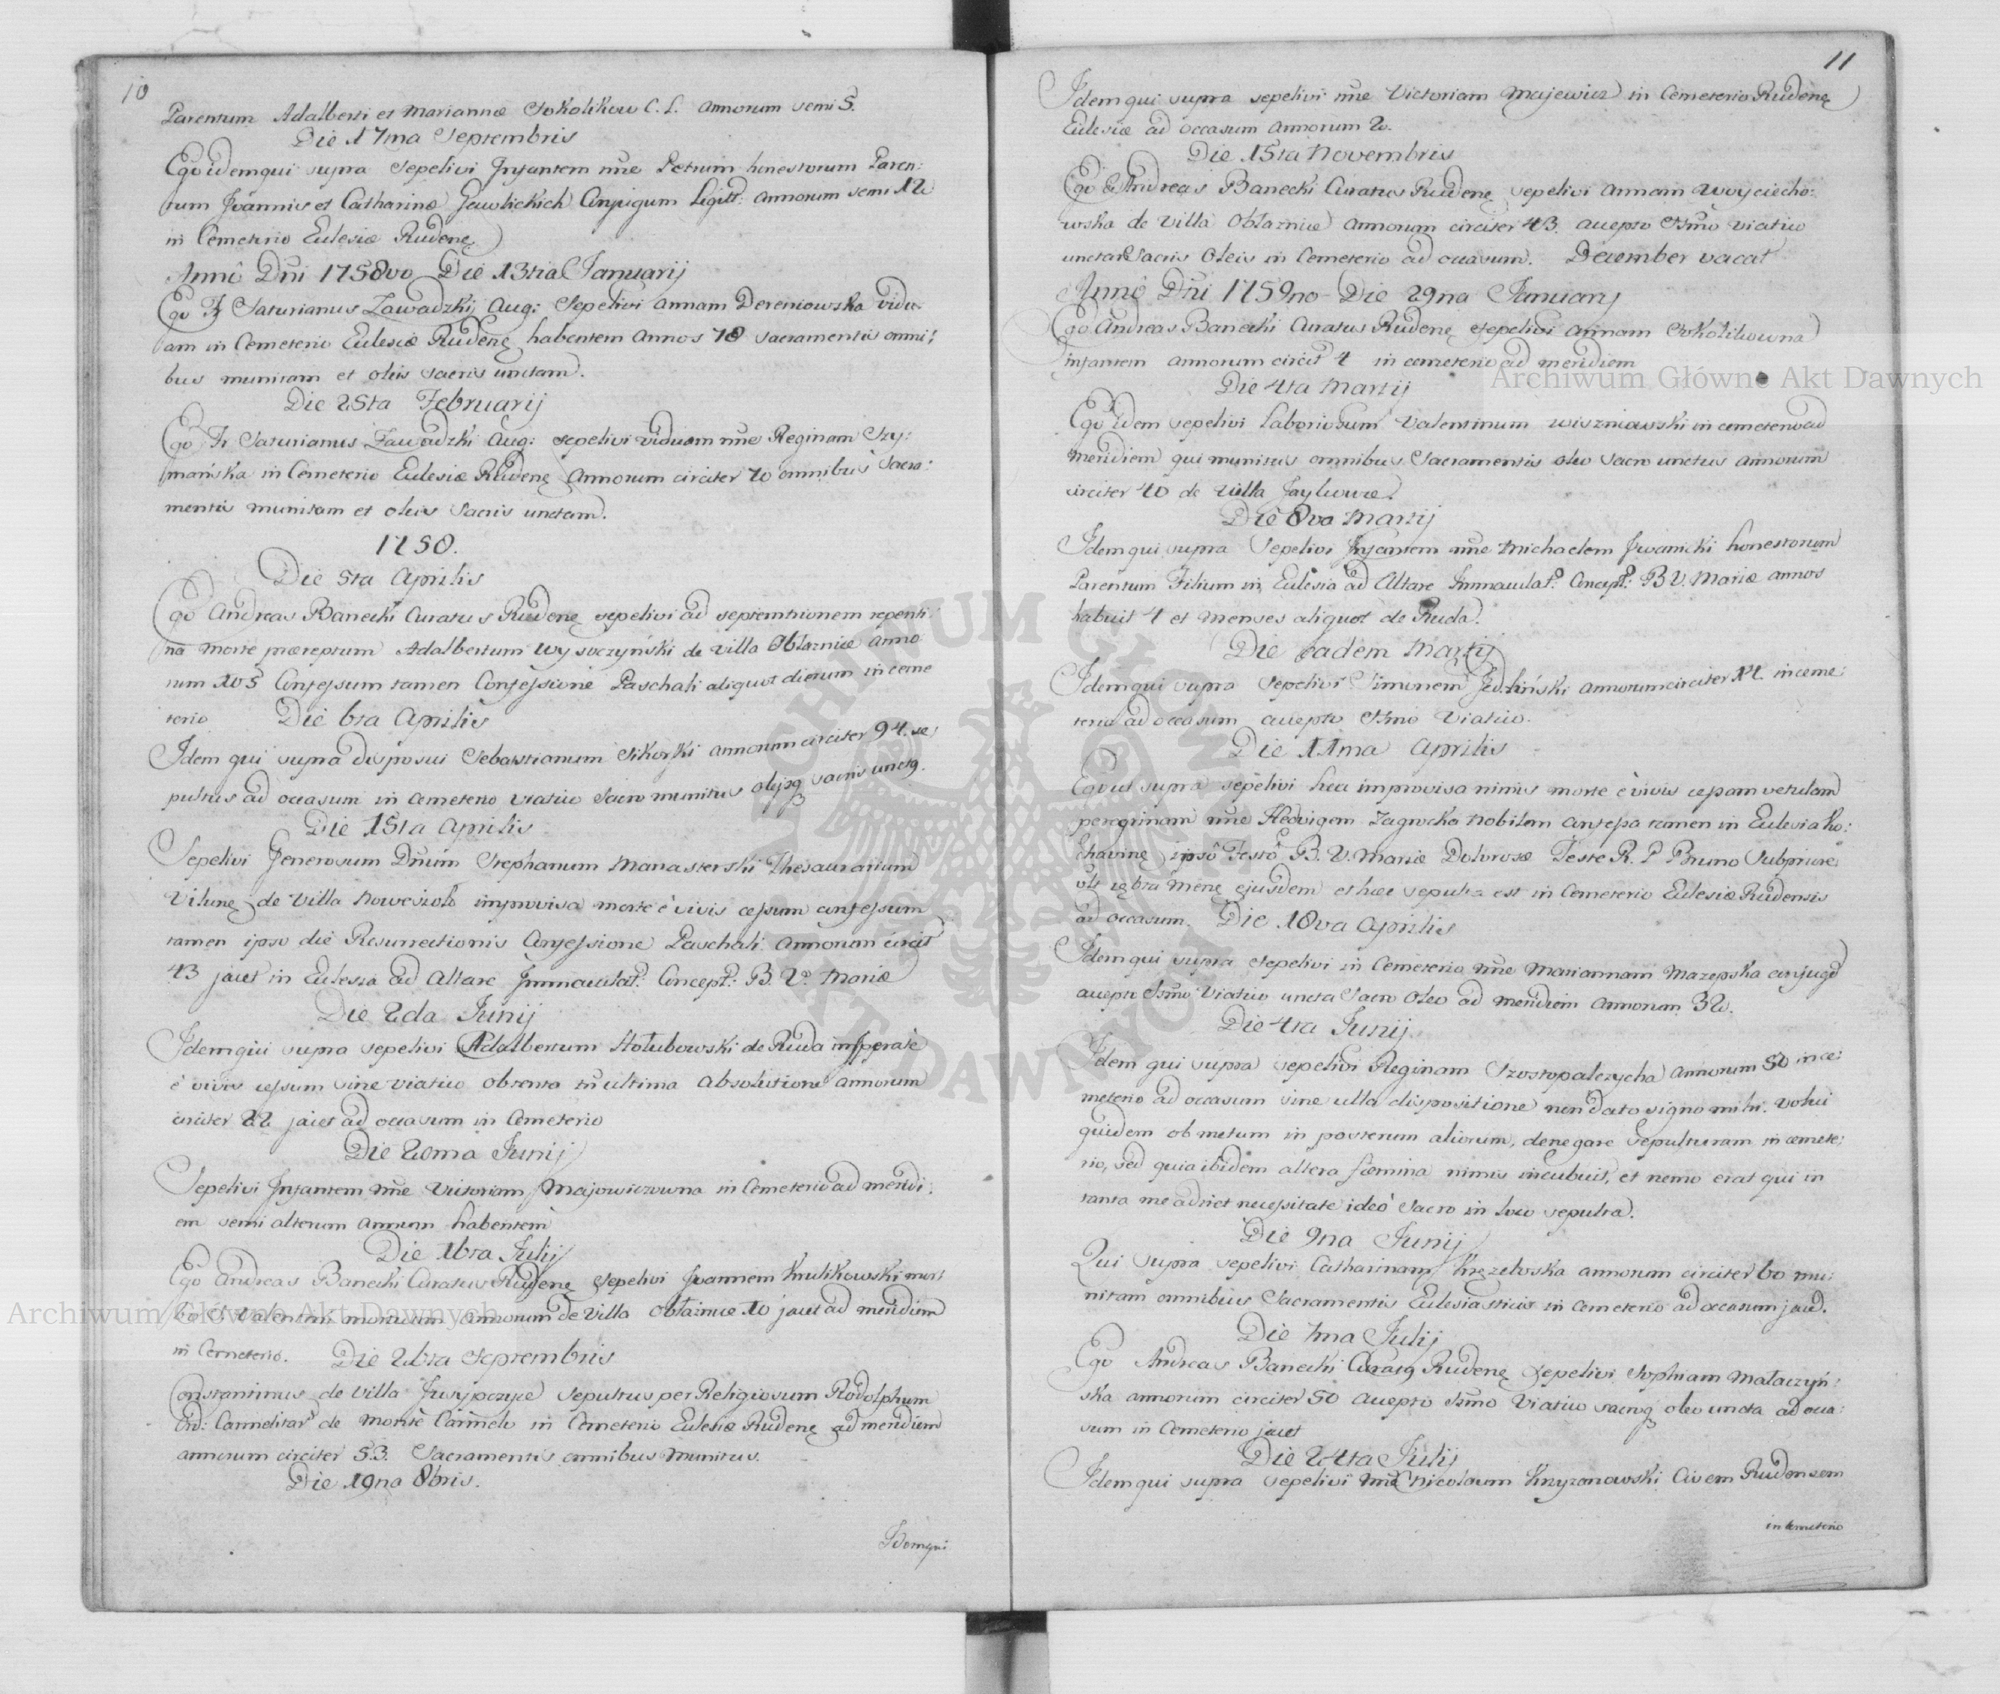 10
Parentum Adalberti et Mariannæ Sokolikow C. L. annorum semi 5.
Die 17ma Septembris
Ego idem qui supra sepelivi Infantem nne Petrum honestorum Paren:
tum Joannis et Catharinæ Gawlickich Conjugum Legitt: annorum semi 12
in Cemeterio Eclesiæ Rudenę
Annô Dñi 1758vo Die 13tia Januarij
Ego Fr Saturianus Zawadzki Aug: Sepelivi annam Dereniowska vidu:
am in Cemeterio Eclesiæ Rudenę habentem annos 78 sacramentis omni:
bus munitam et oleis sacris unctam.
Die 25ta Februarij
Ego Fr Saturianus Zawadzki Aug: sepelivi viduam nne Reginam Szy:
mańska in Cemeterio Eclesiæ Rudenę annorum circiter 70 omnibus sacra:
mentis munitam et oleis sacris unctam.
1758.
Die 5ta Aprilis
Ego Andreas Banecki Curatus Rudenę sepelivi ad septemtrionem repenti:
na morte præreptum Adalbertum Wysoczyński de villa Oblaznice anno
rum 105 Confessum tamen Confessione Paschali aliquot dierum in ceme
terio Die 6ta Aprilis
Idem qui supra disposui Sebastianum Sikorski annorum circiter 94. se:
pultus ad occasum in cemeterio viatico sacro munitus olejsq sacris unctq.
Die 15ta Aprilis
Sepelivi Generosum Dnum Stephanum Manasterski Thesaurarium
Vilunę de villa Nowesioło improvisa morte è vivis cessum confessum
tamen ipso die Resurrectionis Confessione Paschali annorum circit
43 jacet in Eclesia ad Altare Immaculat: Concept: B. V. Mariæ
Die 2da Junij
Idem qui supra sepelivi Adalbertum Hołubowski de Ruda insperate
è vivis cessum sine viatico obtenta tñ ultima absolutione annorum
circiter 22 jacet ad occasum in Cemeterio
Die 20ma Junij
Sepelivi Infantem nne Victoriam Majowiczowna in Cemeterio ad meridi:
em semi alterum annum habentem
Die 16ta Julij
Ego Andreas Banecki Curatus Rudenę sepelivi Joannem Kulikowski mor:
bo S. Valentini mortuum annorum de villa Oblaznice 10 jacet ad meridiem
in Cemeterio. Die 26ta Septembris
Constantinus de villa Jusypczyce sepultus per Religiosum Rodolphum
Ord: Carmelitar de Monte Carmelo in Cemeterio Eclesiæ Rudenę ad meridiem
annorum circiter 53. Sacramentis omnibus munitus.
Die 19na 8bris.
Idem qui
11
Idem qui supra sepelivi nne Victoriam Majewicz in Cemeterio Rudenę
Eclesiæ ad occasum annorum 2.
Die 15ta Novembris
Ego Andreas Banecki Curatus Rudenę sepelivi annam Woyciecho:
wska de villa Oblaznice annorum circiter 43. accepto Ssmo viatico
uncta Sacris Oleis in Cemeterio ad occasum. December vacat
Annô Dñi 1759no Die 29na Januarij
Ego Andreas Banecki Curatus Rudenę sepelivi annam Sokolikowna
infantem annorum circit 4 in cemeterio ad meridiem
Die 4ta Martij
Ego idem sepelivi Laboriosum Valentinum Wiszniowski in cemeterio ad
meridiem qui munitus omnibus Sacramentis oleo sacro unctus annorum
circiter 40 de villa Jaykowce.
Die 8va Martij
Idem qui supra Sepelivi Infantem nne Michaelem Iwanicki honestorum
Parentum Filium in Eclesia ad Altare Immaculat: Concept: B V. Mariæ annos
habuit 4 et menses aliquot de Ruda.
Die eadem Martij
Idem qui supra Sepelivi Simonem Jedliński annorum circiter 14. in ceme:
terio ad occasum accepto Ssmo Viatico.
Die 11ma Aprilis
Ego ut supra sepelivi hic improvisa nimis morte è vivis cessam vetulam
peregrinam nne Hedvigem Zagrocka Nobilem confessa tamen in Eclesia Ko:
chavinę ipsô Festô B. V. Mariæ Dolorosæ Teste R. P Bruno Subpriore
ejusdem et hæc sepulta est in Cemeterio Eclesiæ Rudensis
ad occasum. Die 18va Aprilis
Idem qui supra sepelivi in Cemeterio nne Mariannam Mazepska conjuge
accepto Ssmo Viatico uncta Sacro Oleo ad meridiem annorum 32.
Die 4ta Junij
Idem qui supra sepelivi Reginam Szostopalczycha annorum 50 in ce:
meterio ad occasum sine ulla dispositione non dato signo mihi. volui
quidem ob metum in posterum aliorum, denegare sepulturam in cemete:
rio, sed quia ibidem altera fœmina nimis incubuit, et nemo erat qui in
tanta me adriet necessitate ideò sacro in loco sepulta.
Die 9na Junij
Qui supra sepelivi Catharinam Kręzeloska annorum circiter 60 mu:
nitam omnibus Sacramentis Eclesiasticis in cemeterio ad occasum jacet.
Die 7ma Julij
Ego Andreas Banecki Curatq Rudenę sepelivi Sophiam Malaczyń:
ska annorum circiter 50 accepto Ssmo Viatico sacroq oleo uncta ad occa:
sum in Cemeterio jacet
Die 24ta Julij
Idem qui supra sepelivi nne Nicolaum Krzyzanowski Civem Rudensem
in Cemeterio
Archiwum Główne Akt Dawnych
Archiwum Główne Akt Dawnych
ARCHIWUM GŁÓWNE AKT DAWNYCH